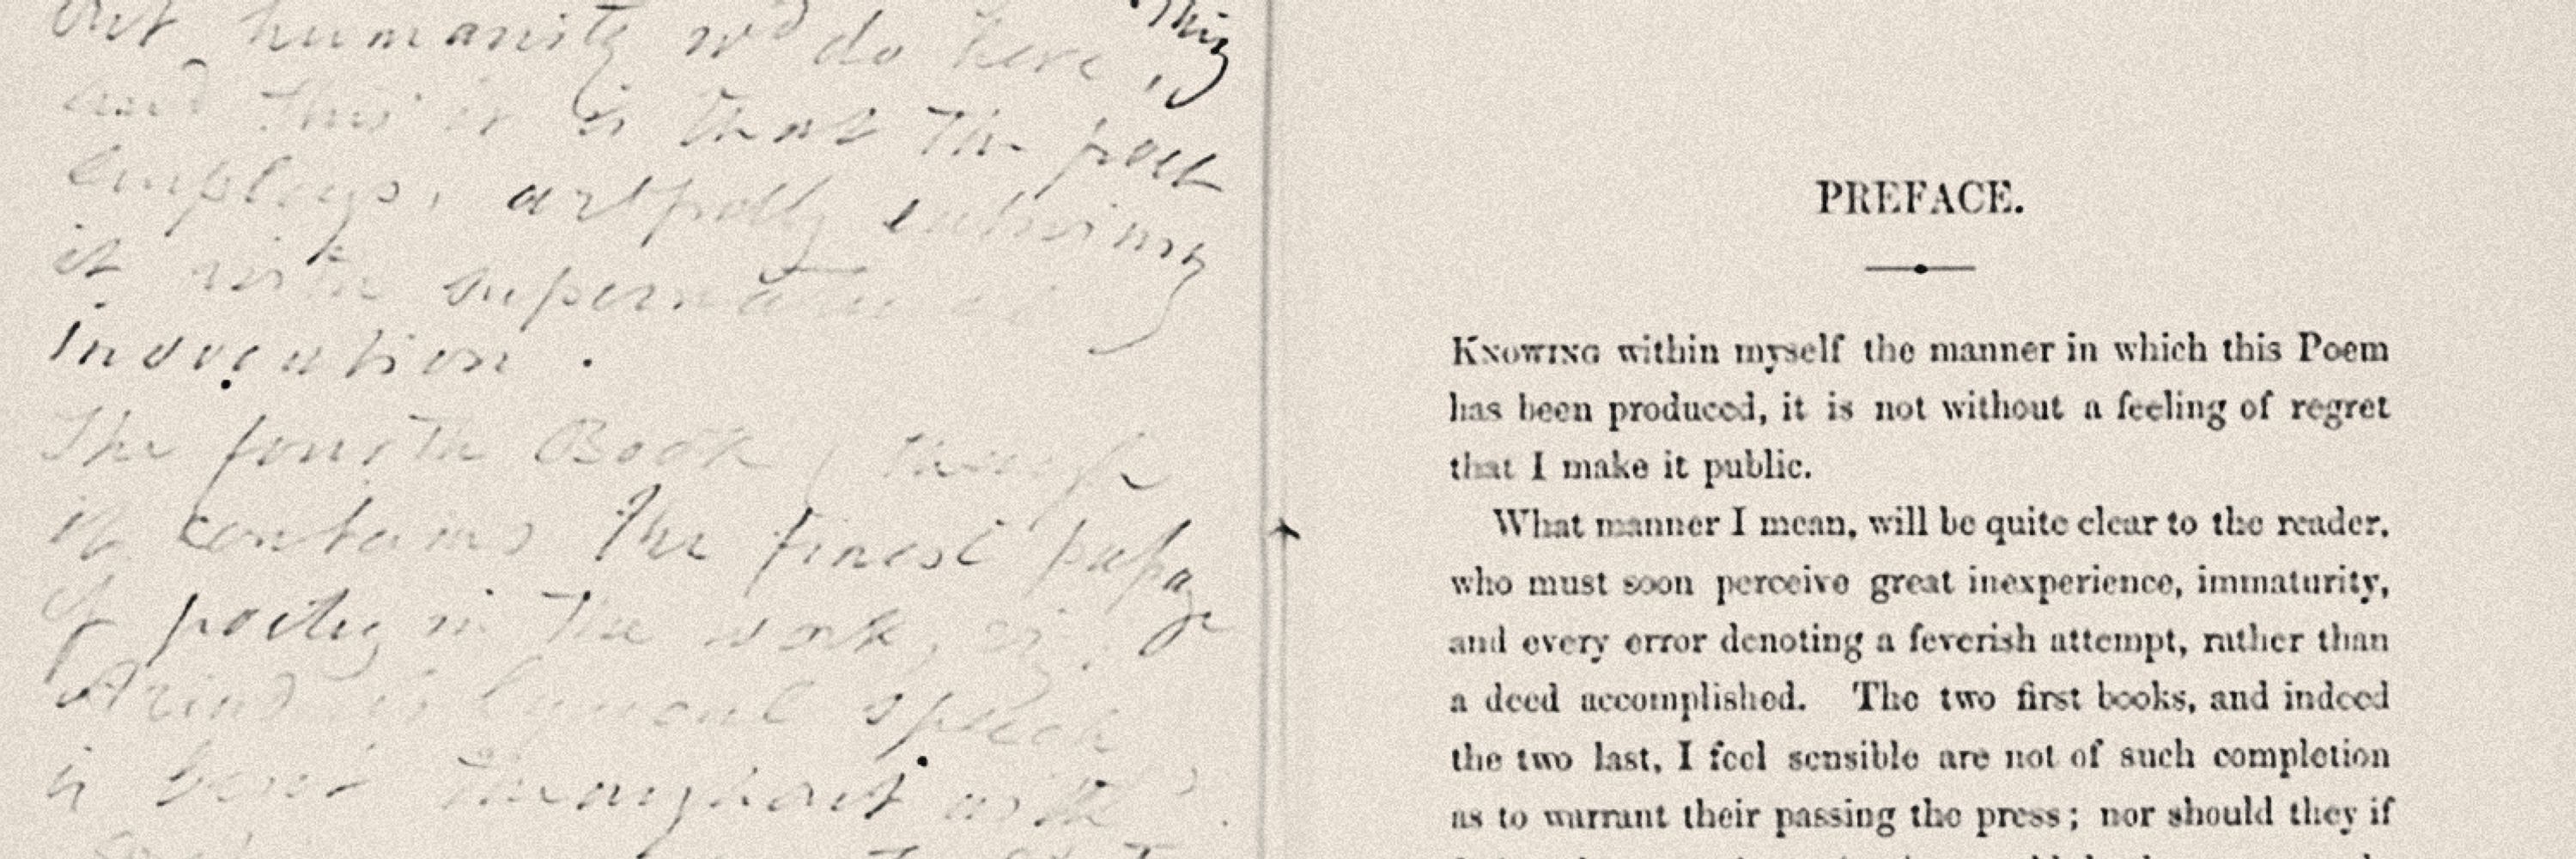 but humanity wd do here,
and this it is that the poet
employs, artfully
it with supernatural
invention.
The fourth Book, though
it contains the finest passage
of poetry in the work,
speech
is throughout
PREFACE.
KNOWING within myself the manner in which this Poem
has been produced, it is not without a feeling of regret
that I make it public.
What manner I mean, will be quite clear to the reader,
who must soon perceive great inexperience, immaturity,
and every error denoting a feverish attempt, rather than
a deed accomplished. The two first books, and indeed
the two last, I feel sensible are not of such completion
as to warrant their passing the press; nor should they if